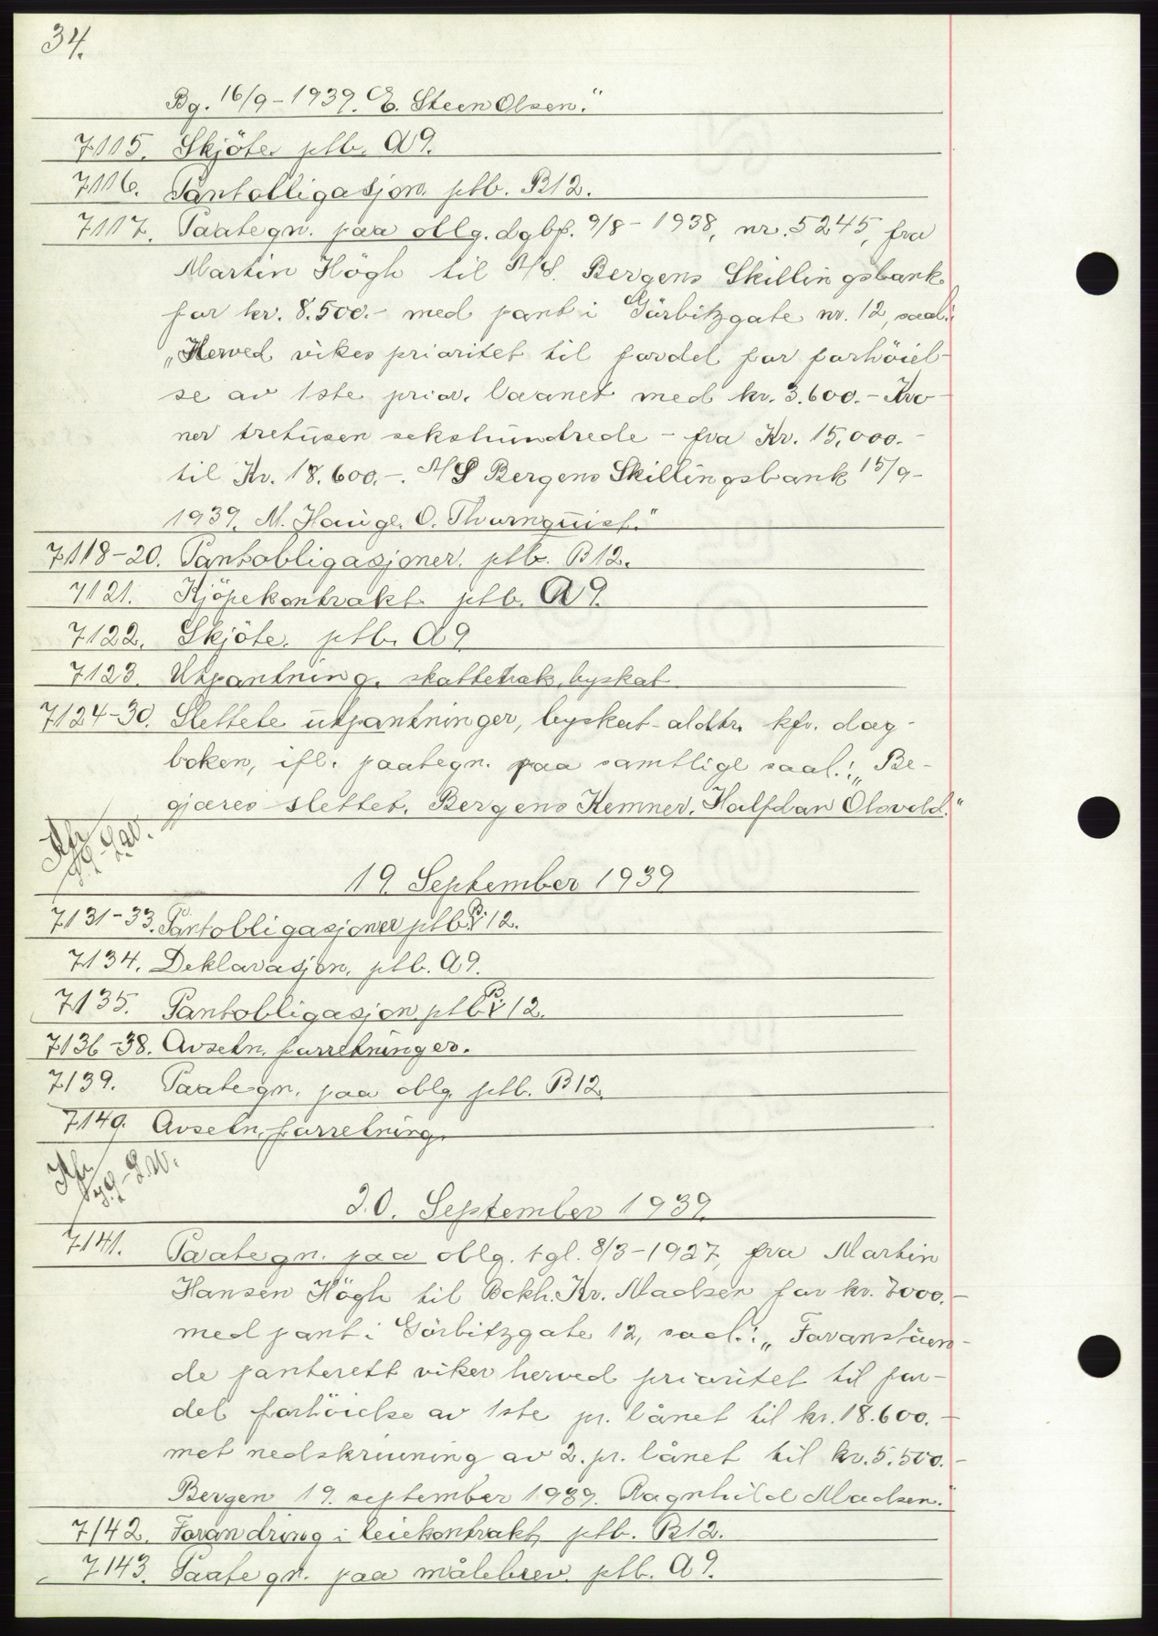 34.
Bg. 16/9-1939. E. Steen Olsen."
7115. Skjöte. ptb. A9.
7116. Pantobligasjon. ptb. B12.
7117. Paategn. paa oblg. dgbf. 9/8-1938, nr. 5245, fra
Martin Högh til A/S. Bergens Skillingsbank
for kr. 8.500.- med pant i Görbitzgate nr. 12, saal.:
"Herved vikes prioritet til fordel for forhöiel-
se av 1ste prior. laanet med kr. 3.600.- Kro-
ner tretusen sekshundrede - fra Kr. 15,000.-
til Kr. 18.600.-. A/S Bergens Skillingsbank 15/9-
1939. M. Hauge. O. Thurnquist."
7118-20. Pantobligasjoner. ptb. B12.
7121. Kjöpekontrakt ptb. A9.
7122. Skjöte. ptb. A9
7123. Utpantning, skattetrak, byskat
7124-30. Slettete utpantninger, byskat-aldtr. kfr. dag-
boken, ifl. paategn. paa samtlige saal.: "Be-
gjæres slettet. Bergens Kemner. Halfdan Olsvold."
19. September 1939
7131-33. Pantobligasjoner ptb. B12.
7134. Deklarasjon. ptb. A9.
7135. Pantobligasjon ptb. B12.
7136-38. Avsetn. forretninger.
7139. Paategn. paa oblg. ptb. B12.
7140. Avsetn. forretning.
20. September 1939.
7141. Paategn. paa oblg. tgl. 8/3-1927, fra Martin
Hansen Högh til Bokh. Kr. Madsen for kr. 7000.-
med pant i Görbitzgate 12, saal.: "Foranstaaen-
de panterett viker herved prioritet til for-
del forhöielse av 1ste pr. lånet til kr. 18.600.-
mot nedskrivning av 2. pr. lånet til kr. 5.500.-
Bergen 19. september 1939. Ragnhild Madsen."
7142. Forandring i leiekontrakt, ptb. B12.
7143. Paategn. paa målebrev. ptb. A9.